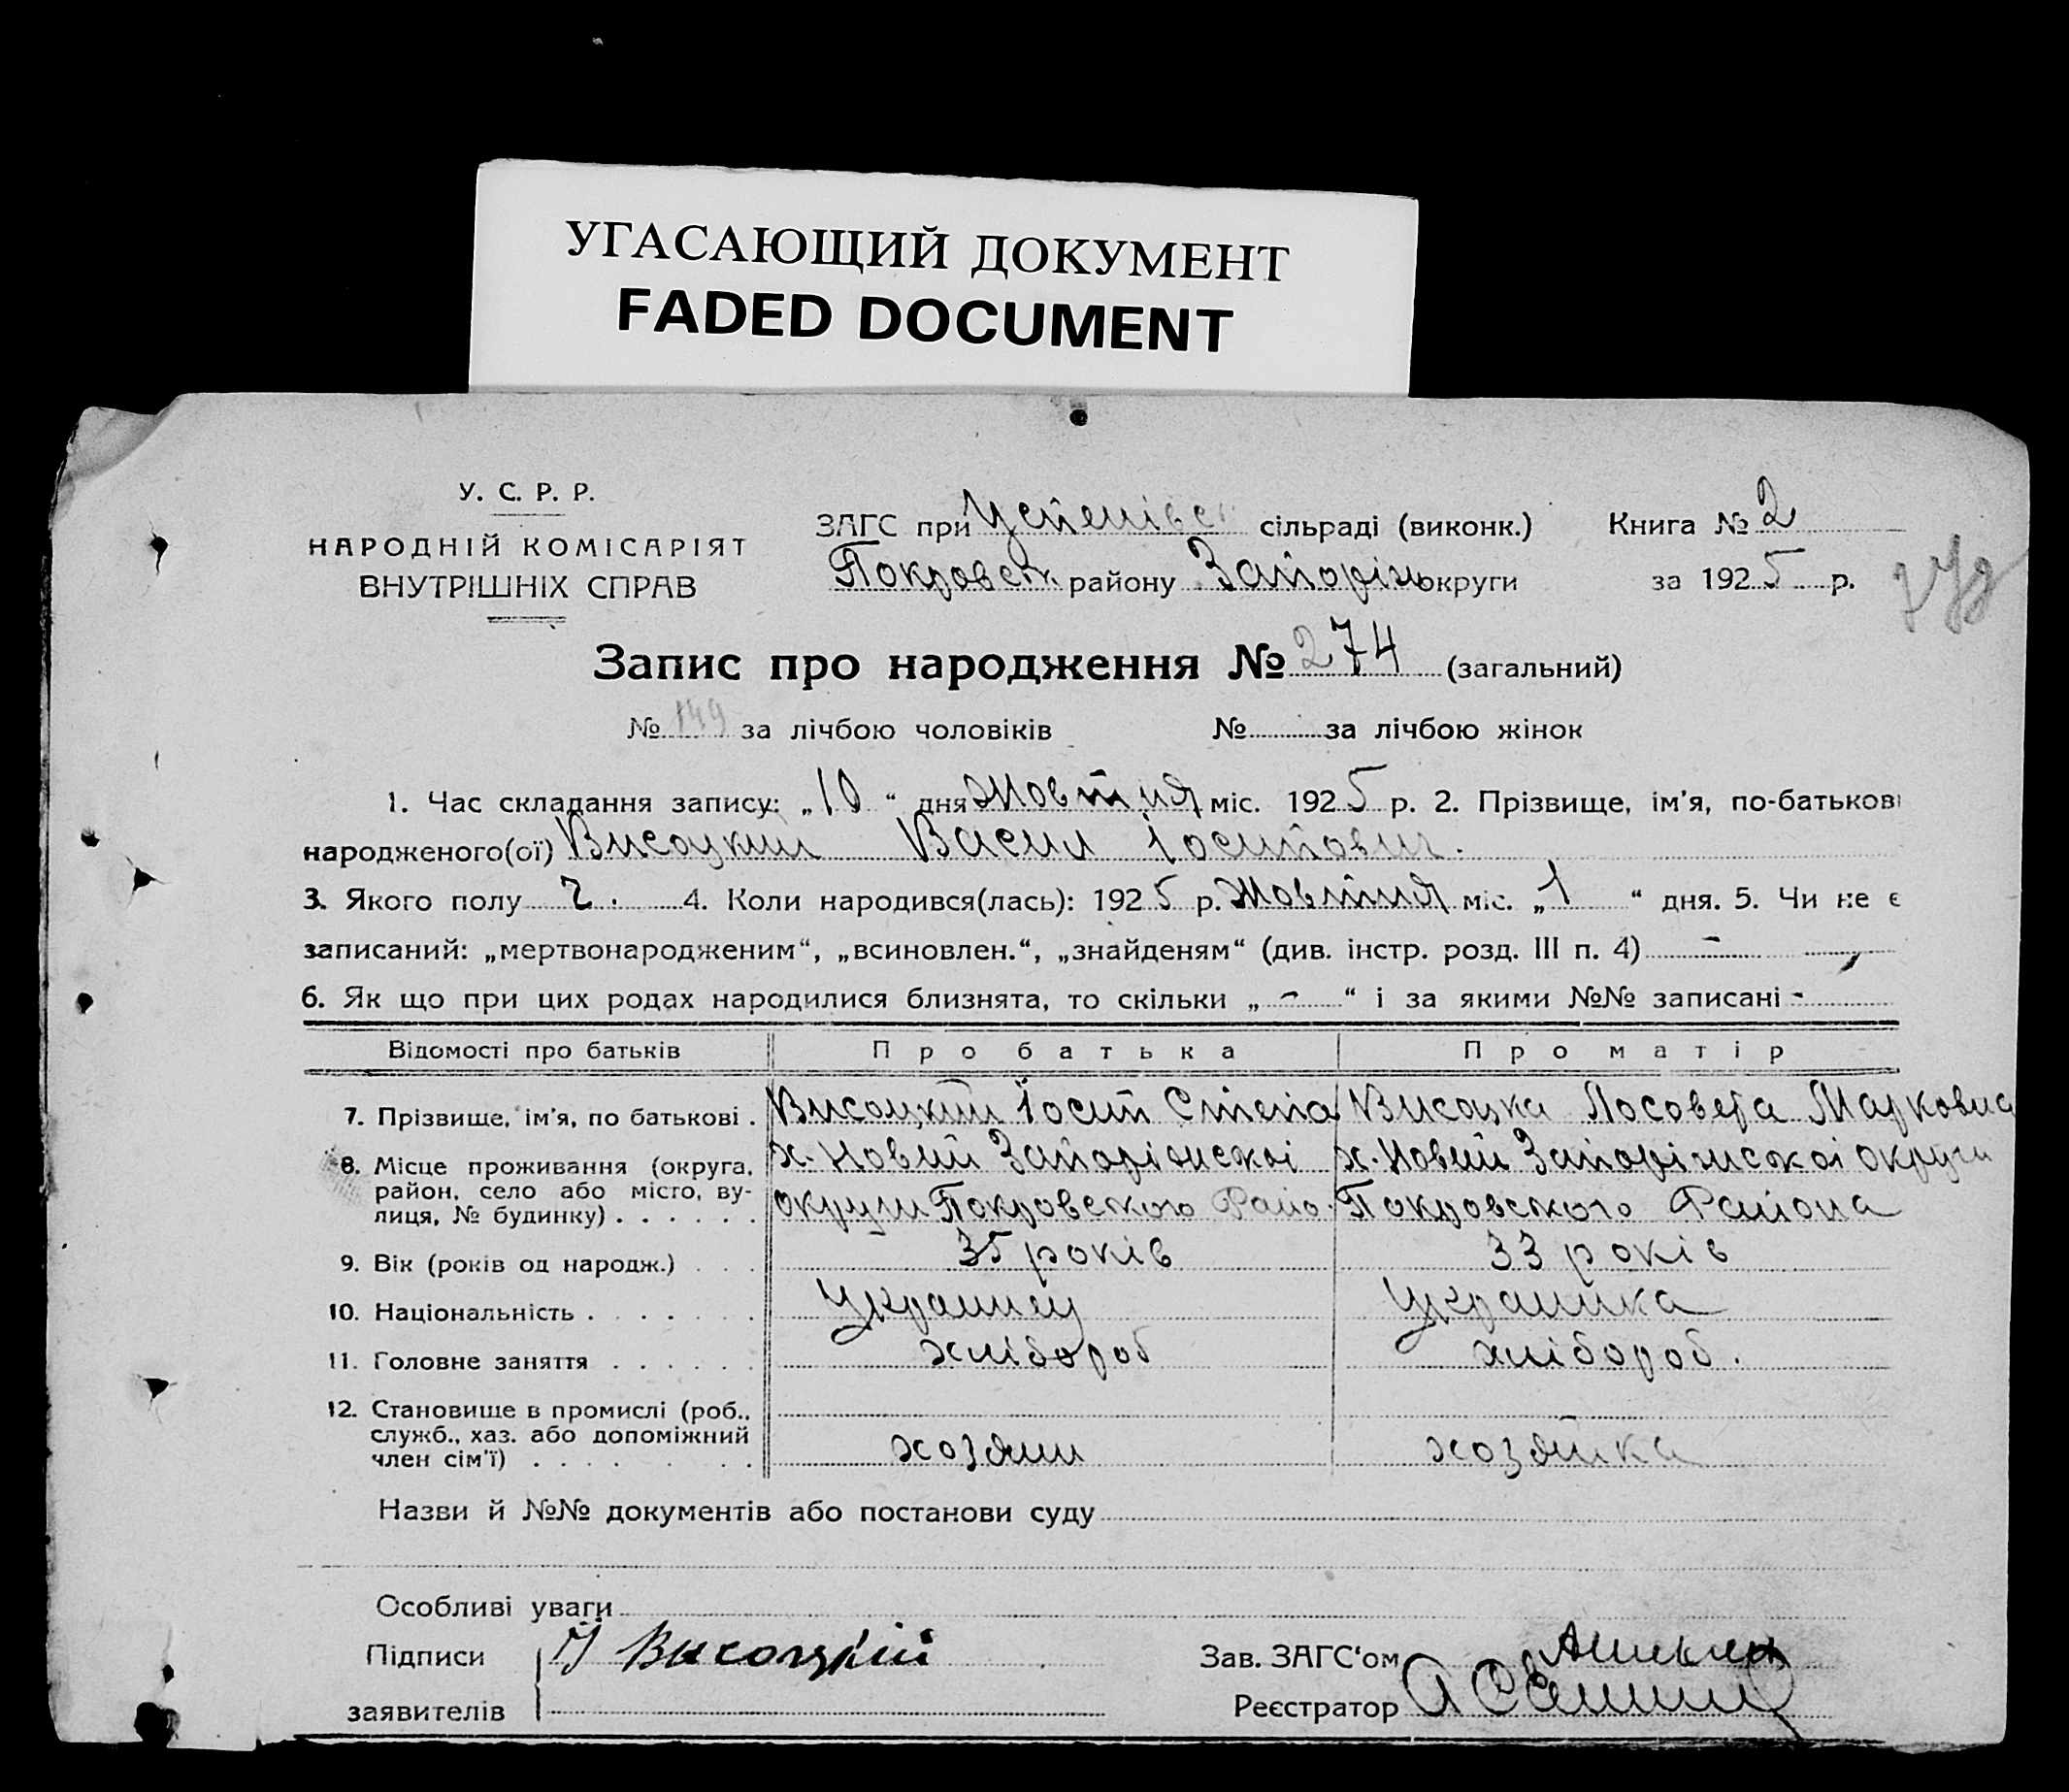 УГАСАЮЩИЙ ДОКУМЕНТ
FADED DOCUMENT
У. С. Р. Р.
НАРОДНІЙ КОМІСАРІЯТ
ВНУТРІШНІХ СПРАВ
ЗАГС при Успенівск сільраді (виконк.) Книга № 2
Покровск. району Запоріж округи за 1925 р.
Запис про народження № 274 (загальний)
№ 149 за лічбою чоловіків № за лічбою жінок
1. Час складання запису: „10“ дня Жовтня міс. 1925 р. 2. Прізвище, ім’я, по-батькові
народженого(ої) Висоцкий Васил Іосипович.
3. Якого полу ч. 4. Коли народився(лась): 1925 р. Жовтня міс. „1“ дня. 5. Чи не є
записаний: „мертвонародженим“, „всиновлен.“, „знайденям“ (див. інстр. розд. III п. 4) –
6. Як що при цих родах народилися близнята, то скільки „–“ і за якими №№ записані -
Відомості про батьків Про батька Про матір
7. Прізвище, ім’я, по батькові . Висоцкий Іосип Степа Висоцка Марковна
8. Місце проживання (округа, х. Новий Запоріжскоі х. Новий Запоріжскоі округи
район, село або місто, ву- округи Покровского Райо. Покровского Района
лиця, № будинку) . . . . . .
9. Вік (років од народж.) . . . 35 років 33 років
10. Національність . . . . . . . Украинец Украинка
11. Головне заняття . . . . . . хлібороб хлібороб.
12. Становище в промислі (роб.,
служб., хаз. або допоміжний хозяин хозяйка
член сім’ї) . . . . . . .
Назви й №№ документів або постанови суду
Особливі уваги
Підписи И Высоцкий Зав. ЗАГС‘ом
заявителів Реєстратор